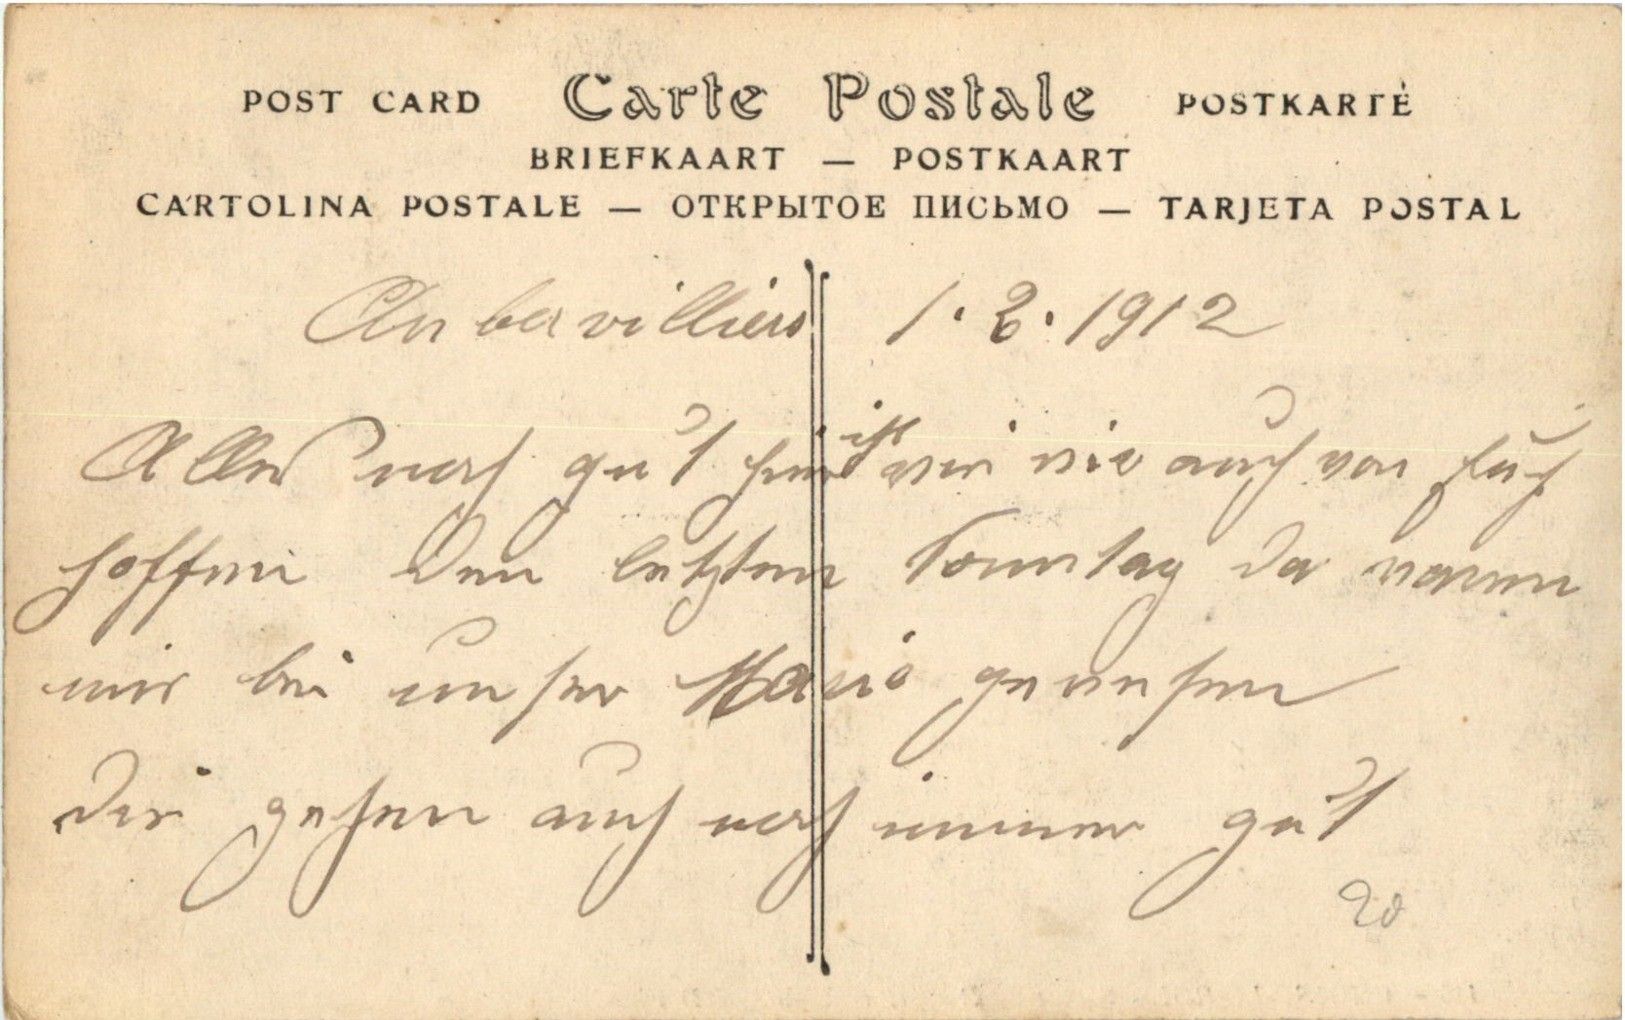 POST CARD Carte Postale POSTKARTE
BRIEFKAART — POSTKAART
CARTOLINA POSTALE — ОТКРЫТОЕ ПИСЬМО — TARJETA POSTAL
Aubervilliers 1. 2. 1912
Alles noch gut hier ist wir wie auch von Euch
hoffen den letzten Sonntag da waren
mir bei unser Marie gewesen
die gehen auch noch immer gut
20